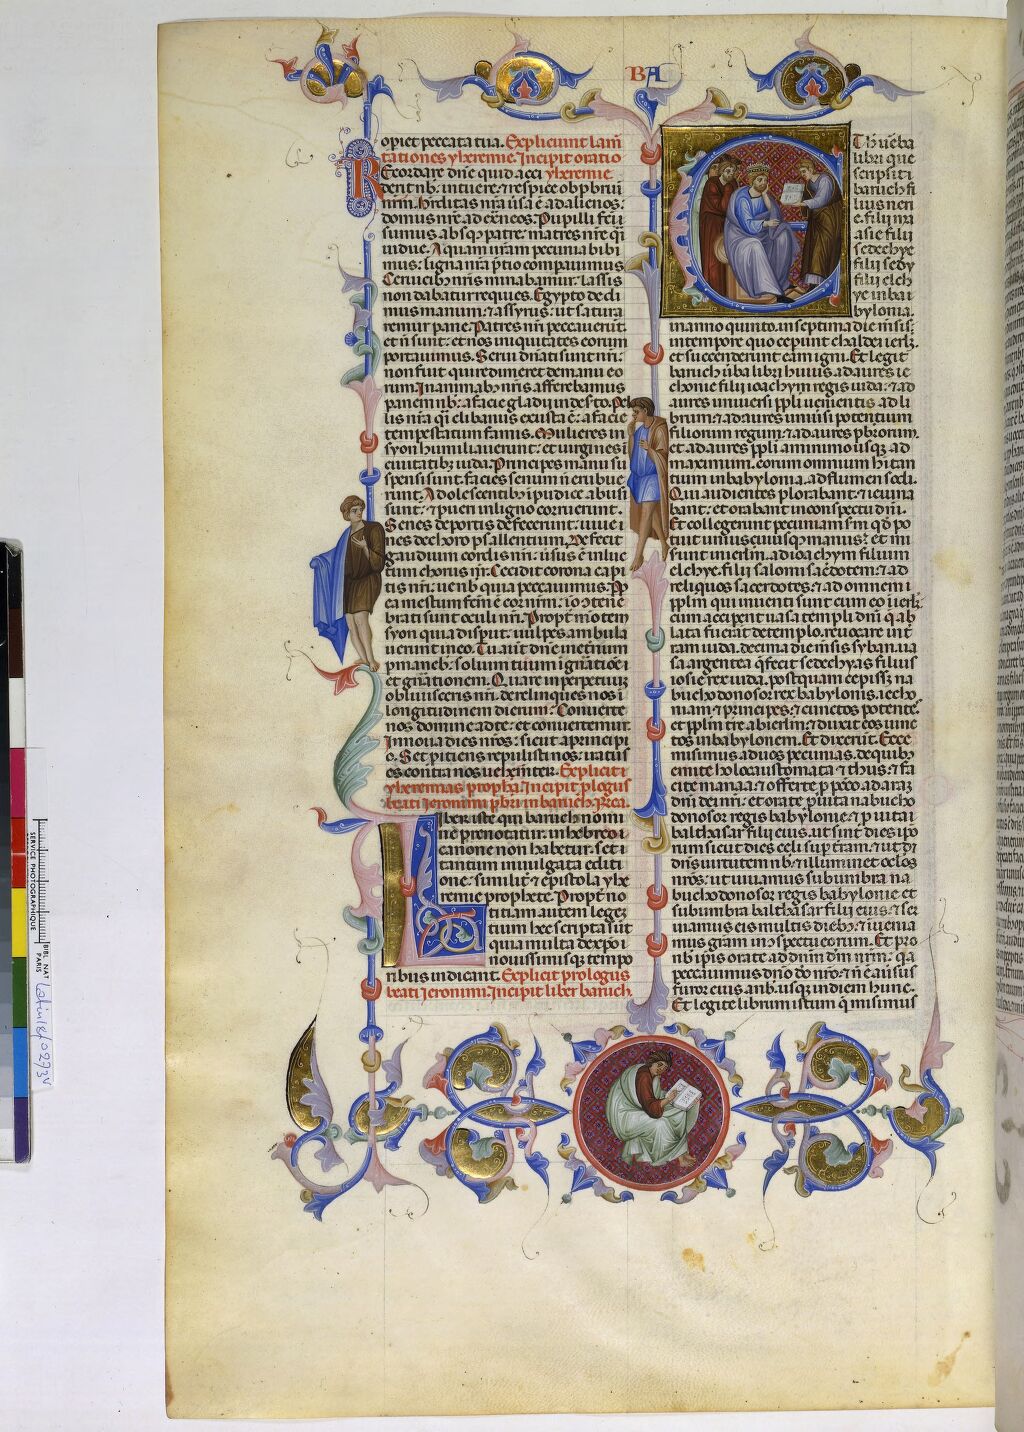 BA
opiet peccata tua. Expliciunt lam̄
tationes yheremie. Incipit oratio
Recordare dn̄e quid acci yheremie
derit nb̄: intuere ⁊ respice obp̄briū
nr̄m. Hr̄ditas nr̄a ūsa ē ad alienos:
domus nr̄e ad ex̄neos. Pupilli fc̄i
sumus absq; patre: matres nr̄e q̄i
uidue. Aquam nr̄am pecunia bibi
mus: ligna nr̄a p̄tio comparauimus
Ceruicib; nr̄is minabamur: lassis
non dabatur requies. Egypto dedi
mus manum: ⁊ assyriis: ut satura
remur pane. Patres nr̄i peccauerūt.
et n̄ sunt: et nos iniquitates eorum
portauimus. Serui dn̄ati sunt nr̄i:
non fuit qui redimeret de manu eo
rum. In animab; nr̄is afferebamus
panem nb̄: a facie gladii in des̄to. Pel
lis nr̄a q̄i clibanus exusta ē: a facie
tempestatum famis. Mulieres in
syon humiliauerunt: et uirgines ī
ciuitatib; iuda. Principes manu su
spensi sunt. facies senum n̄ erubue
runt. Adolescentib; īpudice abusi
sunt: ⁊ pueri in ligno corruerunt.
Senes de portis defecerunt: iuue
nes de choro psallentium. Defecit
gaudium cordis nr̄i: ūsus ē in luc
tum chorus nr̄. Cecidit corona capi
tis nr̄i: ue nb̄ quia peccauimus. Pp̄
ea mestum fc̄m ē cor nr̄m: io ⁊ tene
brati sunt oculi nr̄i. Propt̄ motem
syon quia disp̄iit: uulpes ambula
uerunt in eo. Tu aūt dn̄e in et̄num
p̄manebis: solium tuum ī gn̄atiōe ī
et gn̄ationem. Quare in perpetuum
obliuisceris nr̄i: derelinques nos ī
longitudinem dierum: Conuerte
nos domine ad te: et conuertemur.
Innoua dies nr̄os: sicut a principi
o. Set p̄iciens repulisti nos: iratus
es contra nos uehem̄ter. Explicit
yheremias proph̄a. Incipit p̄logus
beati ieronimi p̄br̄i in baruch.
Liber iste qui baruch nomi
ne prenotatur. in hebreo ī
canone non habetur. set ī
tantum in uulgata editi
one: similit̄ ⁊ epistola yhe
remie prophete. Propt̄ no
titiam autem legent
tium hec scripta sūt
quia multa de xp̄o ī
nouissimisque tempo
ribus indicant. Explicit prologus
beati ieronimi. Incipit liber baruch.
Et h̄ uēba
libri que
scripsit
baruch fi
lius neri
e. filii ma
asie filii
sedechye
filii sedy
filii elch
ye in bai
bylonia.
in anno quinto. in septima die m̄sis:
in tempore quo ceperunt chaldei ierl̄m
et succenderunt eam igni. Et legit
baruch ūba libri huius ad aures ie
chonie filii ioachym regis iuda: ⁊ ad
aures uniuersi pp̄li uenientis ad li
brum: ⁊ ad aures uniūsi potentium
filiorum regum: ⁊ ad aures p̄br̄orum.
et ad aures pp̄li a minimo usq; ad
maximum. eorum omnium hitan
tium in babylonia. ad flumen sodi.
Qui audientes plorabant: ⁊ ieiuna
bant: et orabant in conspectu dn̄i.
Et collegerunt pecuniam s̄m qd̄ po
tuit unius cuiusq; manus: et mi
serunt in ierl̄m. ad ioachym filium
elchye. filii salomi sac̄dotem: ⁊ ad
reliquos sacerdotes: ⁊ ad omnem
pp̄lm qui inuenti sunt cum eo ī ierl̄m:
cum acciperent uasa templi dn̄i q̄ ab
lata fuerāt de templo. reuocare in t̄
ram iuda. decima die m̄sis syban. ua
sa argentea q̄ fecit sedechyas filius
iosie rex iuda. postquam cepiss; na
buchodonosor rex babylonis. iecho
niam ⁊ principes: ⁊ cunctos potentes
et pp̄lm t̄re a ierl̄m: ⁊ duxit eos uinc
tos in babylonem. Et dixerūt. Ecce
misimus ad uos pecunias. de quib;
emite holocaustomata ⁊ thus: ⁊ fa
cite manaa: ⁊ offerte p̄ pcc̄o ad arā
dn̄i dei nr̄i: et orate p̄ uita nabucho
donosor regis babylonie: ⁊ p̄ uita
balthasar filii eius. ut sint dies ip̄o
rum sicut dies celi sup̄ t̄ram: ⁊ ut det
dn̄s uirtutem nb̄: ⁊ illuminet oc̄los
nr̄os: ut uiuamus sub umbra na
buchodonosor regis babylonie et
sub umbra balthasar filii eius: ⁊ ser
uiamus eis multis dieb;: ⁊ īuenia
mus gr̄am in ⁊spectu eorum. Et pro
nb̄ ipis orate ad dn̄m dm̄ nr̄m: q̄a
peccauimus dn̄o do nr̄o: ⁊ n̄ ē auersus
furor eius a nb̄. usq; in diem hunc.
Et legite librum istum q̄ misimus
SERVICE PHOTOGRAPHIQUE
BIBL NAT PARIS
Latin 18f 0273v